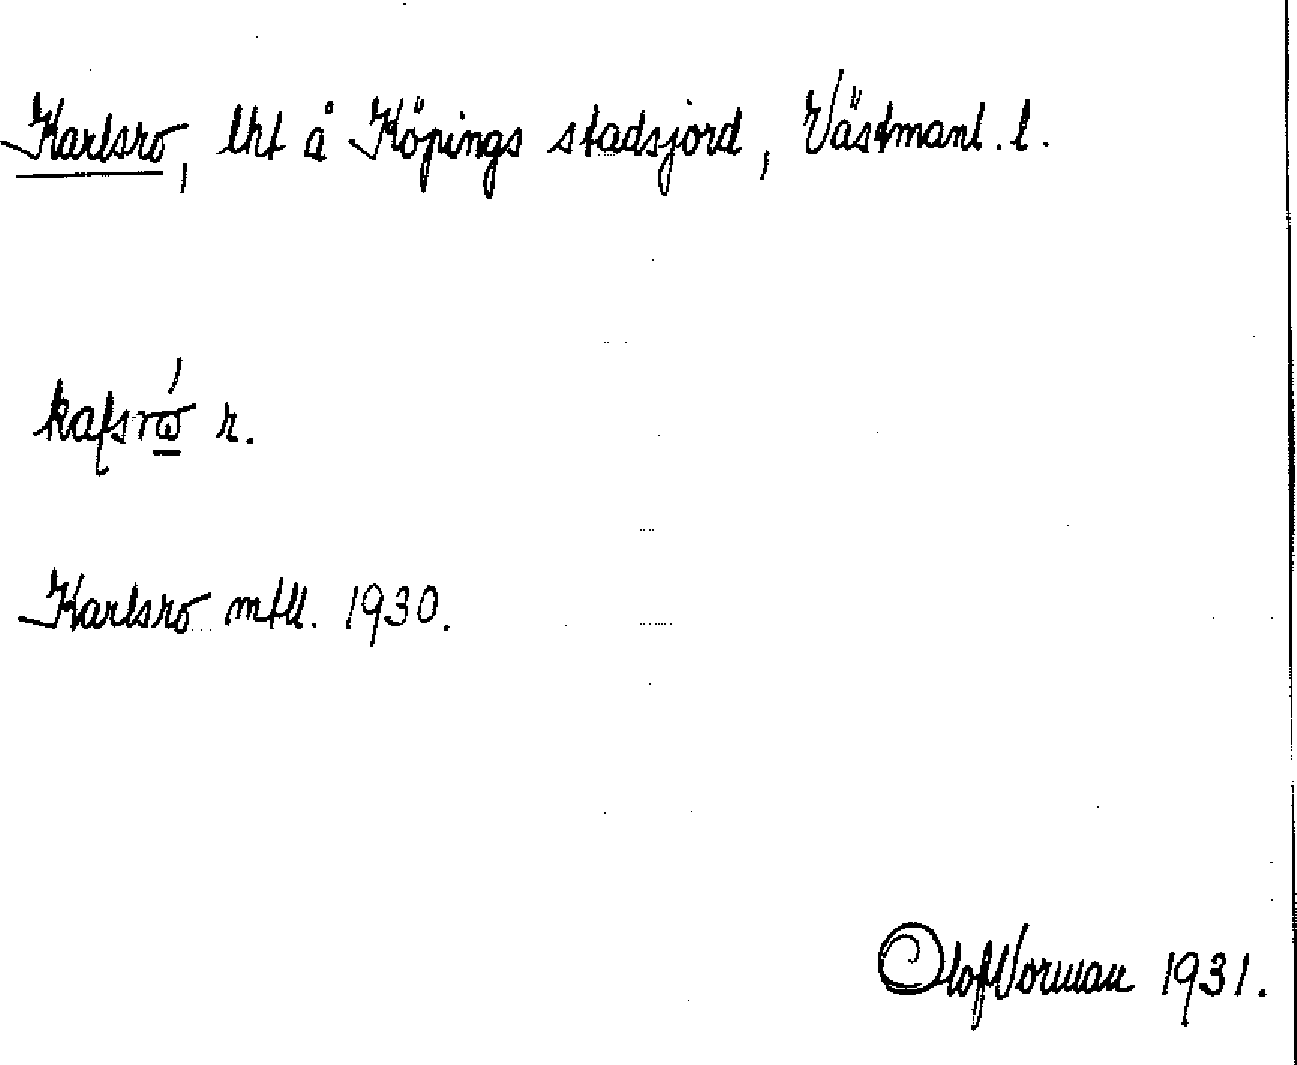 Karlsro, lht å Köpings stadsjord, Västmanl. l.
r.
Karlsro mtll. 1930.
Olof Vorman 1931.